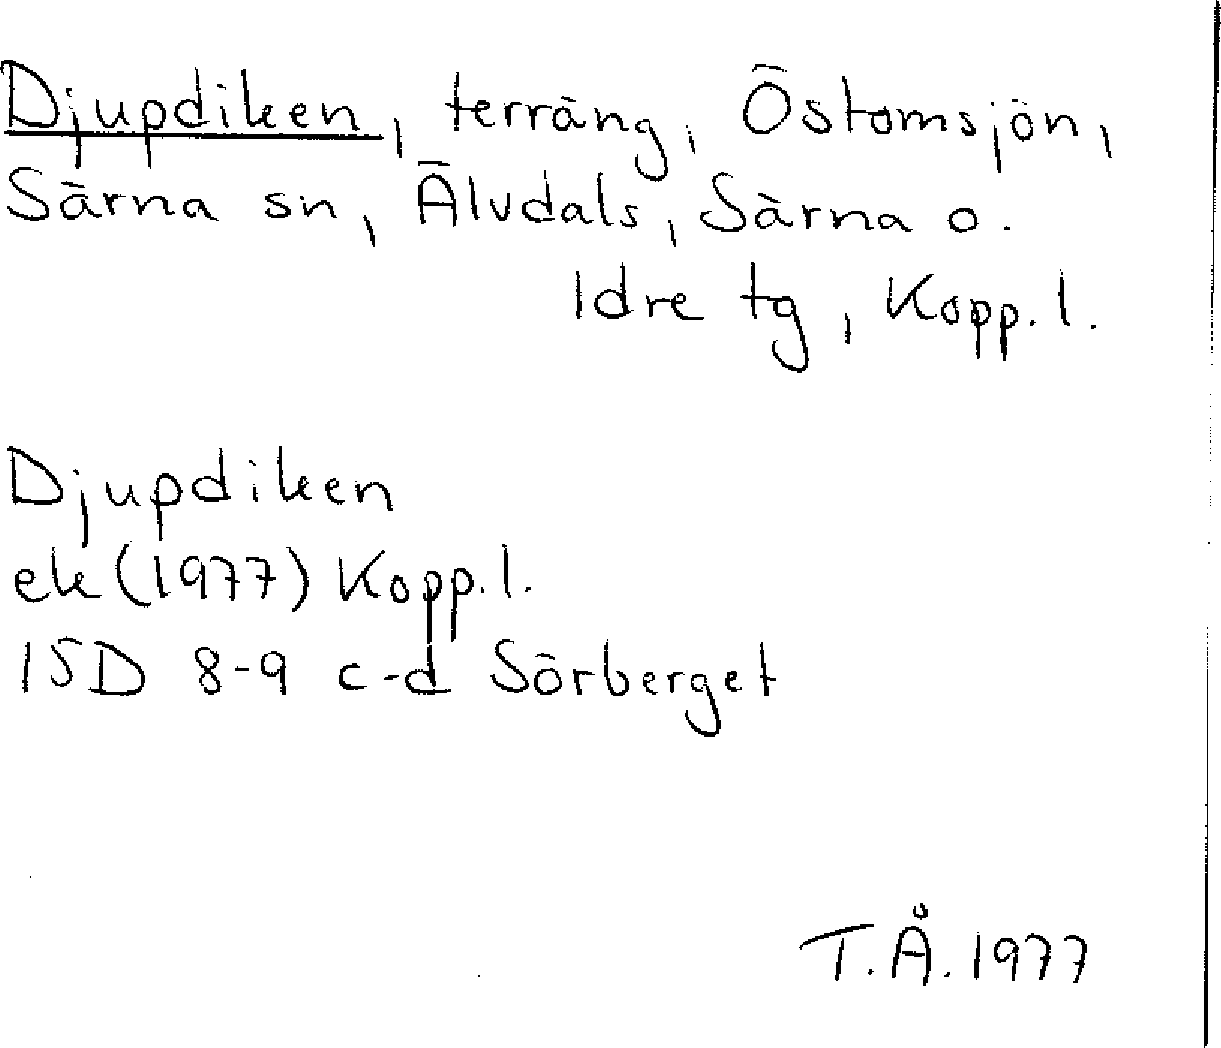 Djupdiken, terräng, Östomsjön,
Särna sn, Älvdals, Särna o.
Idre tg, Kopp. l.
Djupdiken
ek (1977) Kopp. l.
15D 8-9 c-d Sörberget
T.Å. 1977